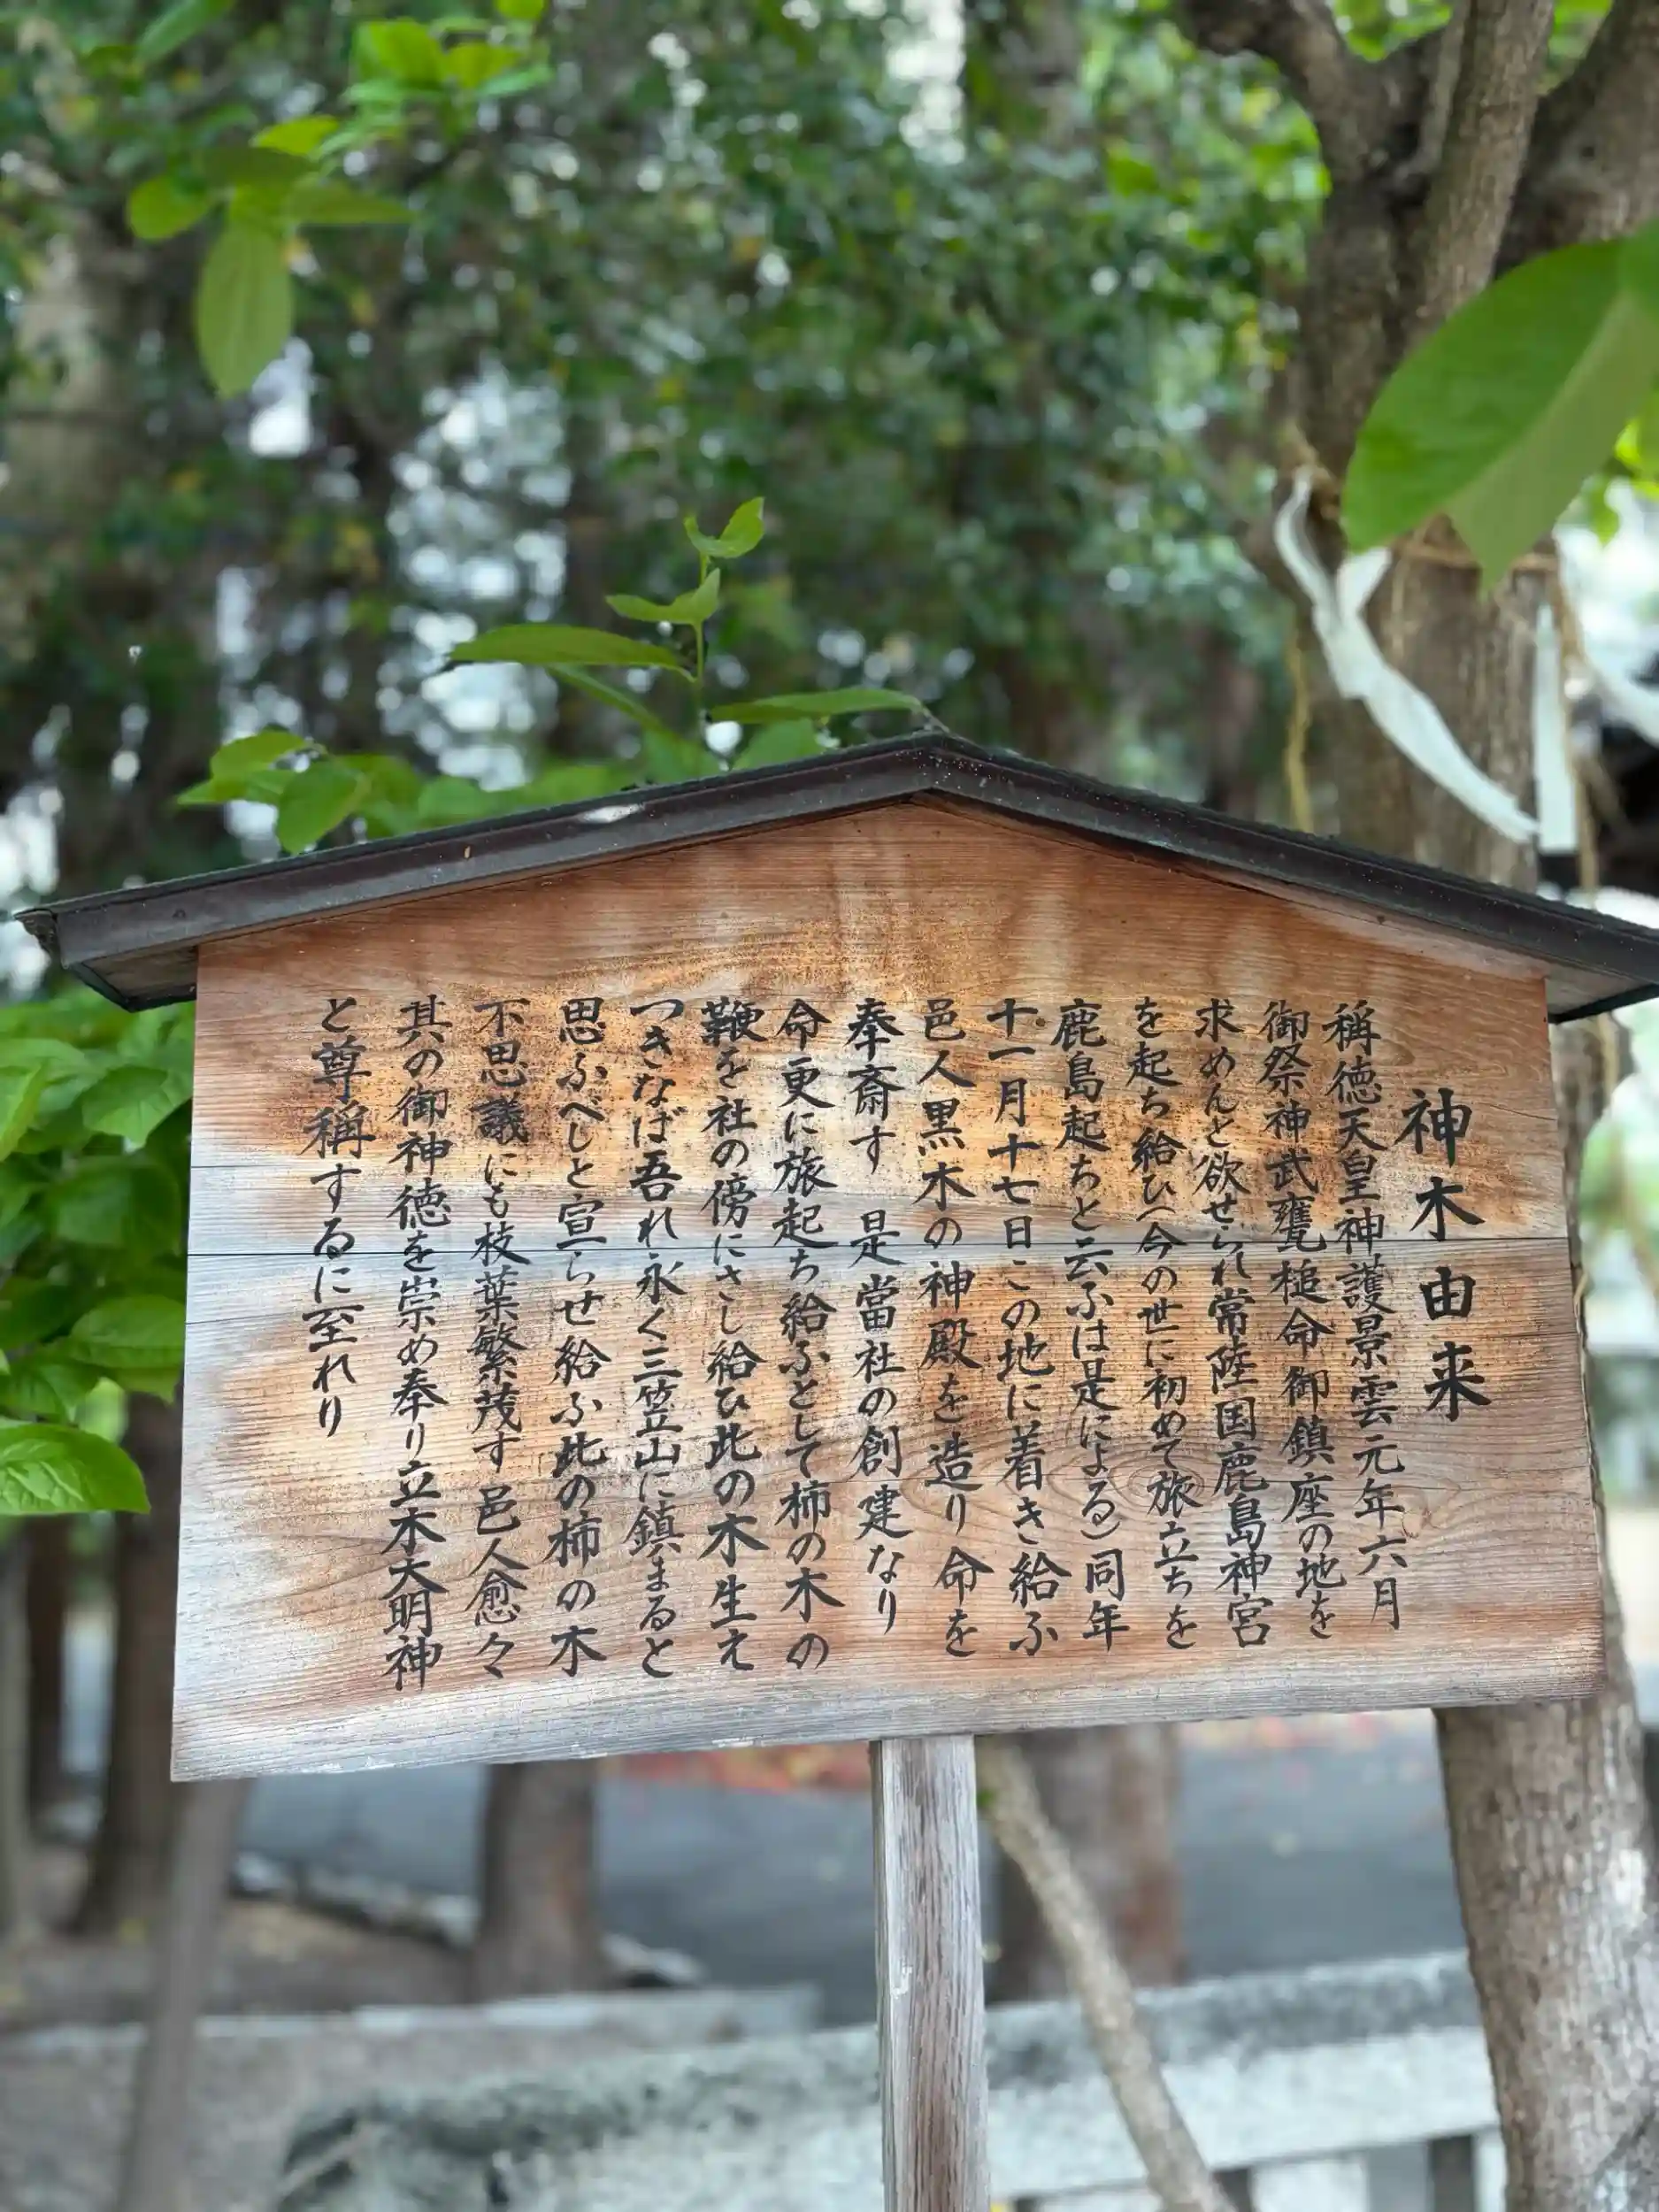 神木由来
稱徳天皇神護景雲元年六月
御祭神武甕槌命御鎮座の地を
求めんと欲せられ常陸国鹿島神宮
を起ち給ひ(今の世に初めて旅立ちを
鹿島起ちと云ふは是による)同年
十一月十七日この地に着き給ふ
邑人黒木の神殿を造り命を
奉斎す 是當社の創建なり
命更に旅起ち給ふとして柿の木の
鞭を社の傍にさし給ひ此の木生え
つきなば吾れ永く三笠山に鎮まると
思ふべしと宣らせ給ふ此の柿の木
不思議にも枝葉繁茂す邑人愈々
其の御神徳を崇め奉り立木大明神
と尊稱するに至れり